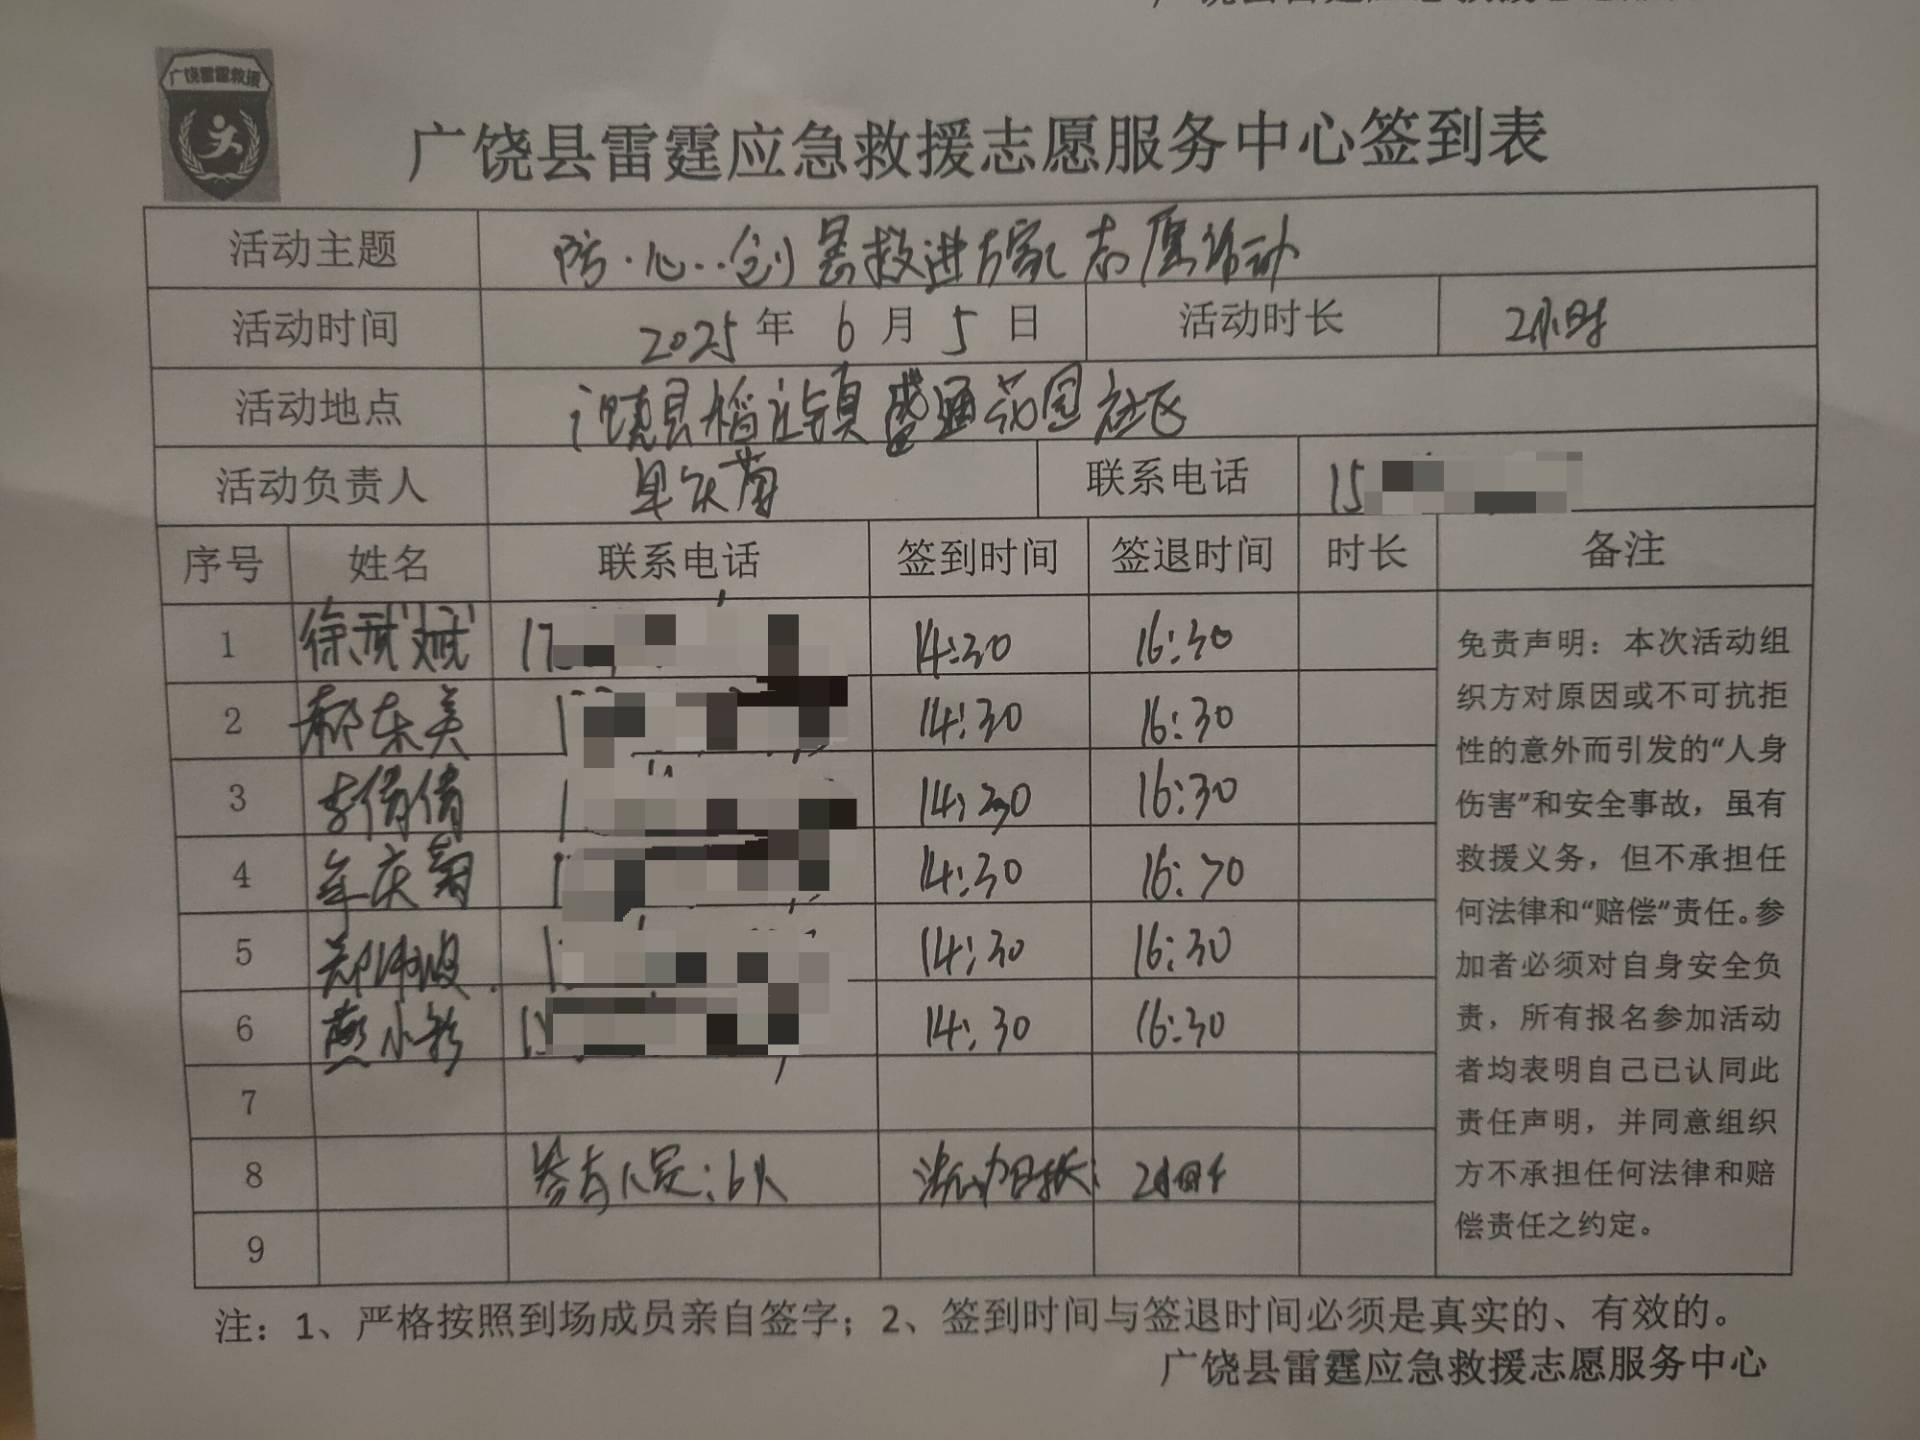 广饶雷霆救援
广饶县雷霆应急救援志愿服务中心签到表
活动主题 防·心··创 急救进万家志愿活动
活动时间 2025年6月5日 活动时长 2小时
活动地点 广饶县稻庄镇盛通花园社区
活动负责人 牟庆菊 联系电话 15
序号 姓名 联系电话 签到时间 签退时间 时长 备注
1 徐斌斌 17 14:30 16:30
2 郝东美 1 14:30 16:30
3 李倩倩 1 14:30 16:30
4 牟庆菊 1 14:30 16:30
5 郑伟波 1 14:30 16:30
6 燕小彩 1 14:30 16:30
7
8 参与人员:6人 活动时长: 2小时
9
免责声明：本次活动组
织方对原因或不可抗拒
性的意外而引发的“人身
伤害”和安全事故，虽有
救援义务，但不承担任
何法律和“赔偿”责任。参
加者必须对自身安全负
责，所有报名参加活动
者均表明自己已认同此
责任声明，并同意组织
方不承担任何法律和赔
偿责任之约定。
注：1、严格按照到场成员亲自签字；2、签到时间与签退时间必须是真实的、有效的。
广饶县雷霆应急救援志愿服务中心